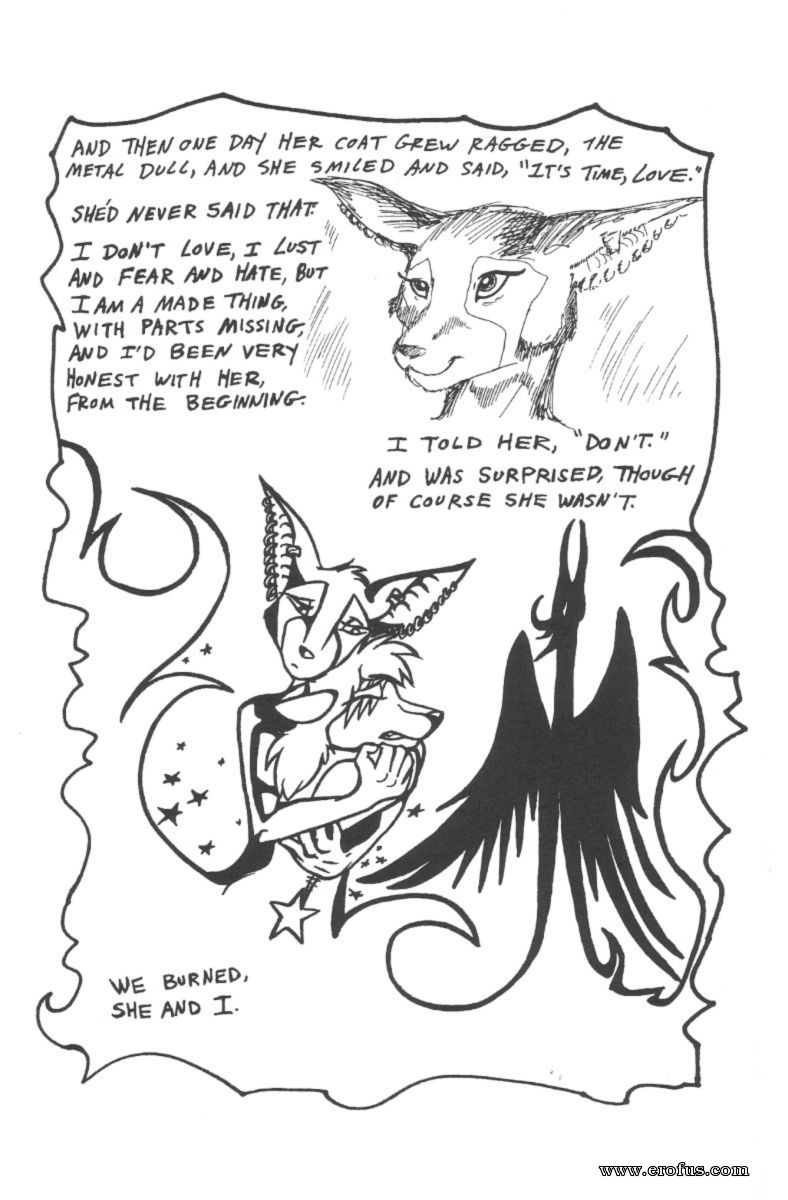 AND THEN ONE DAY HER COAT GREW RAGGED, THE
METAL DULL, AND SHE SMILED AND SAID, "IT'S TIME, LOVE."
SHE'D NEVER SAID THAT.
I DON'T LOVE, I LUST
AND FEAR AND HATE, BUT
I AM A MADE THING,
WITH PARTS MISSING,
AND I'D BEEN VERY
HONEST WITH HER,
FROM THE BEGINNING.
I TOLD HER, "DON'T."
AND WAS SURPRISED, THOUGH
OF COURSE SHE WASN'T.
WE BURNED,
SHE AND I.
www.erofus.com